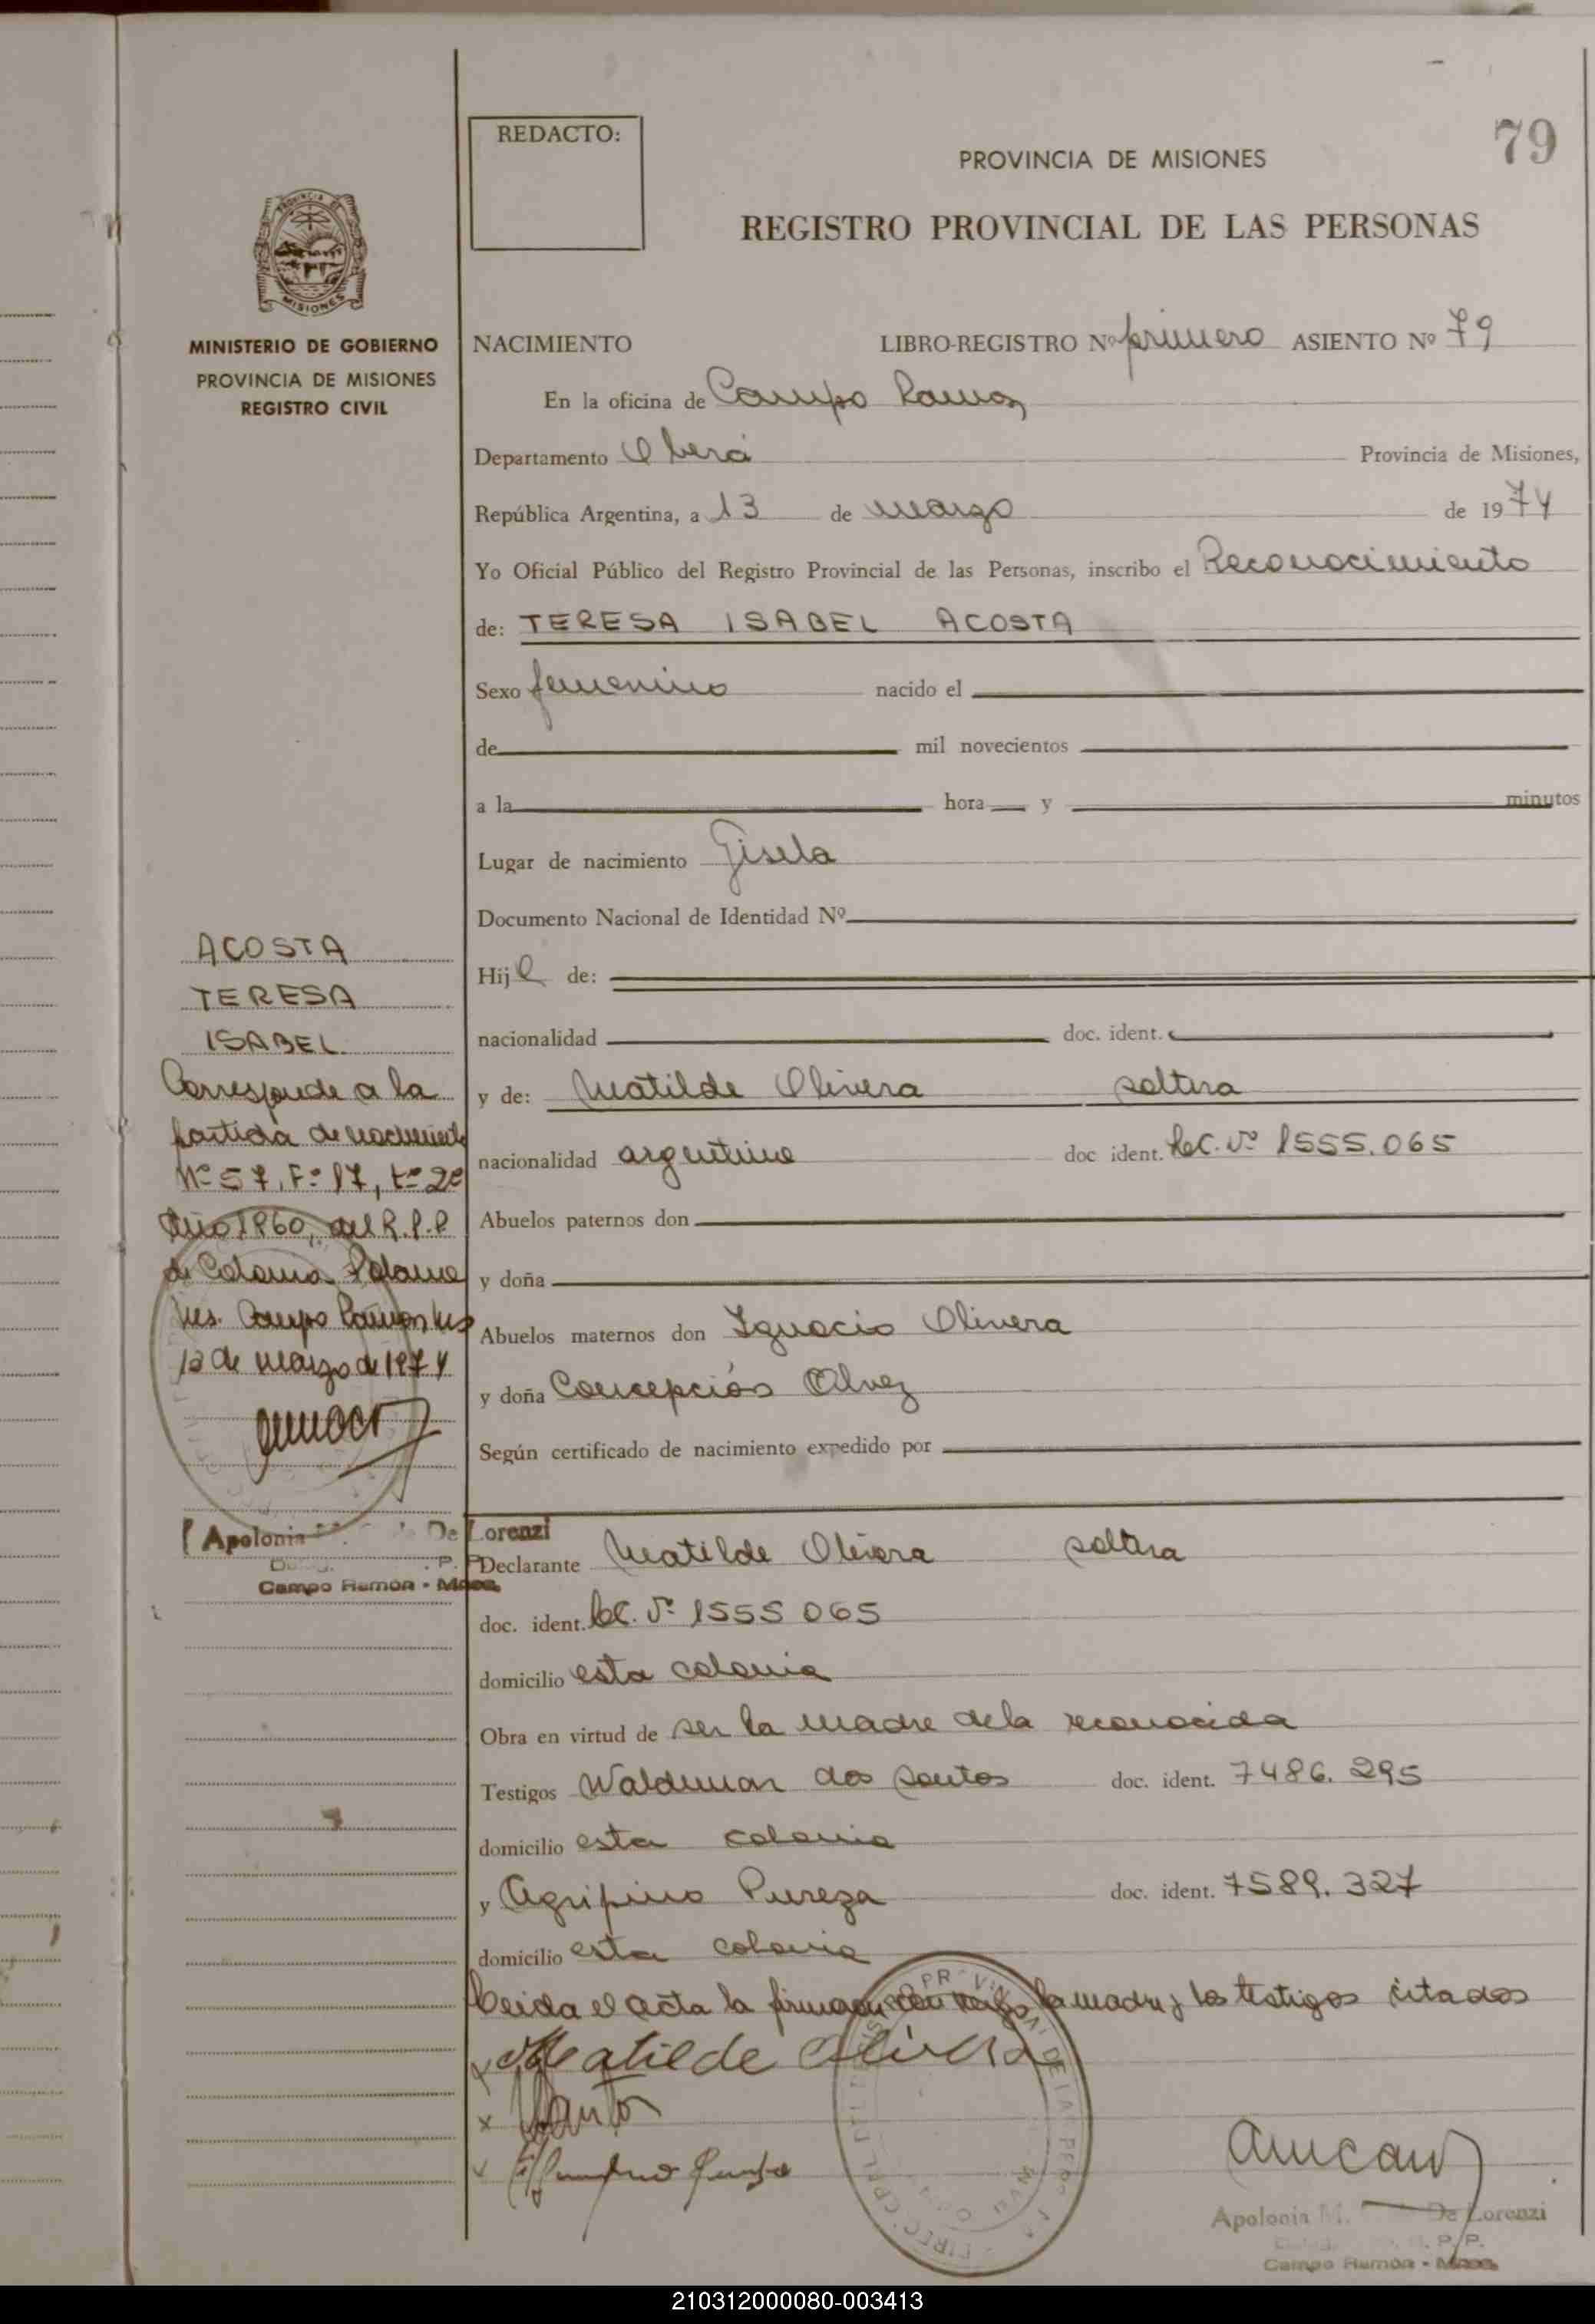 79
REDACTO:
PROVINCIA DE MISIONES
REGISTRO PROVINCIAL DE LAS PERSONAS
MINISTERIO DE GOBIERNO
PROVINCIA DE MISIONES
REGISTRO CIVIL
NACIMIENTO LIBRO-REGISTRO Nº primero ASIENTO Nº 79
En la oficina de Campo Ramon
Departamento Oberá Provincia de Misiones,
República Argentina, a 13 de marzo de 1974
Yo Oficial Público del Registro Provincial de las Personas, inscribo el Reconocimiento
de: TERESA ISABEL ACOSTA
Sexo femenino nacido el
de mil novecientos
a la hora y minutos
Lugar de nacimiento Gisela
Documento Nacional de Identidad Nº
Hija de:
nacionalidad doc. ident.
y de: Matilde Olivera soltera
nacionalidad argentina doc ident. Nº 1555.065
Abuelos paternos don
y doña
Abuelos maternos don Ignacio Olivera
y doña Concepción Alvez
Según certificado de nacimiento expedido por
ACOSTA
TERESA
ISABEL
Corresponde a la
partida de nacimiento
Nº 57, Fº 17, tº 2º
Año 1960, del R.P.P
de Colonia
Mes. Campo Ramon Mes
13 de marzo de 1974
Apolonia De Lorenzi
Campo Ramón - Mnes.
Declarante Matilde Olivera soltera
doc. ident. Nº 1555 065
domicilio esta colonia
Obra en virtud de ser la madre de la reconocida
Testigos Waldemar dos Santos doc. ident. 7486.295
domicilio esta colonia
y Agripino Pureza doc. ident. 7589.327
domicilio esta colonia
Leida el acta la firman conmigo la madre y los testigos citados
x Matilde Olivera
x Santos
x
Apolonia M. De Lorenzi
P.P.
Campo Ramón - Mnes.
210312000080-003413